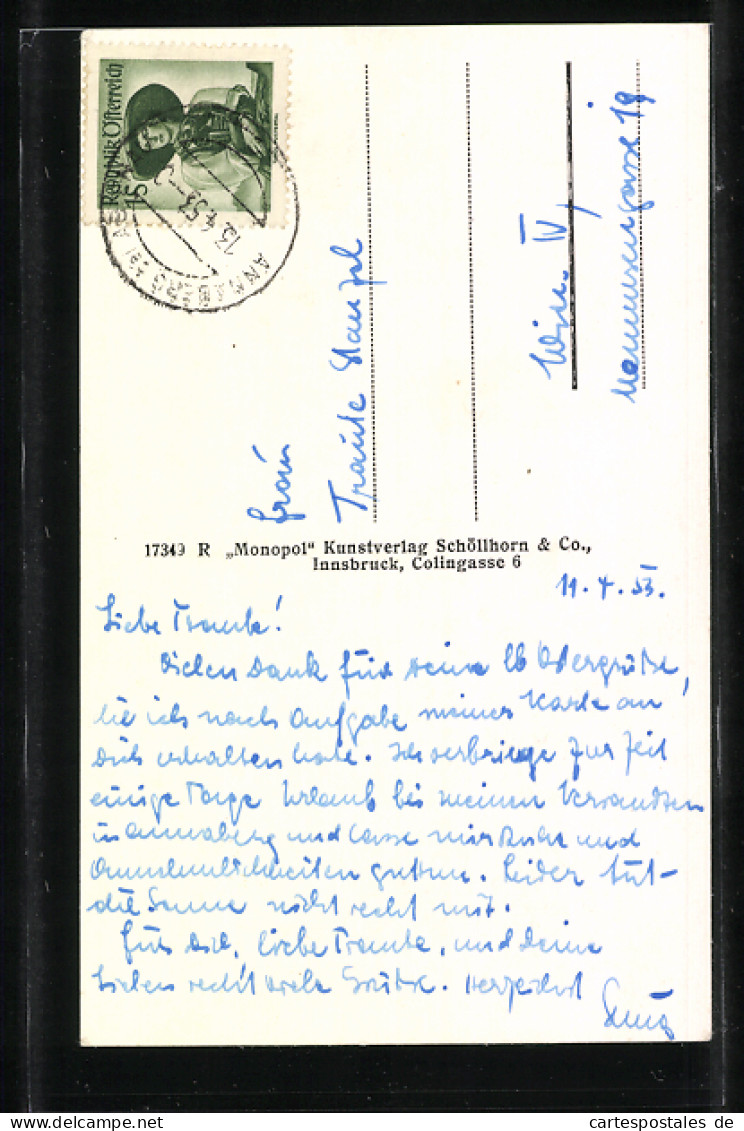 Republik Österreich
ANNABERG
13.4.53
Frau
Traute Stanzl
Wien IV,
19
17349 R „Monopol“ Kunstverlag Schöllhorn & Co.,
Innsbruck, Colingasse 6
11.4.53.
Liebe Traute!
Vielen Dank für Deine lb Ostergrüße,
die ich nach Aufgabe meiner Karte an
Dich erhalten habe. Ich verbringe zur Zeit
einige Tage Urlaub bei meinen Verwandten
in Annaberg und lasse mir Ruhe und
Annehmlichkeiten guttun. Leider tut
die Sonne nicht recht mit.
Für Dich, liebe Traute, und Deine
Lieben recht viele Grüße. Herzlichst
cartespostales de